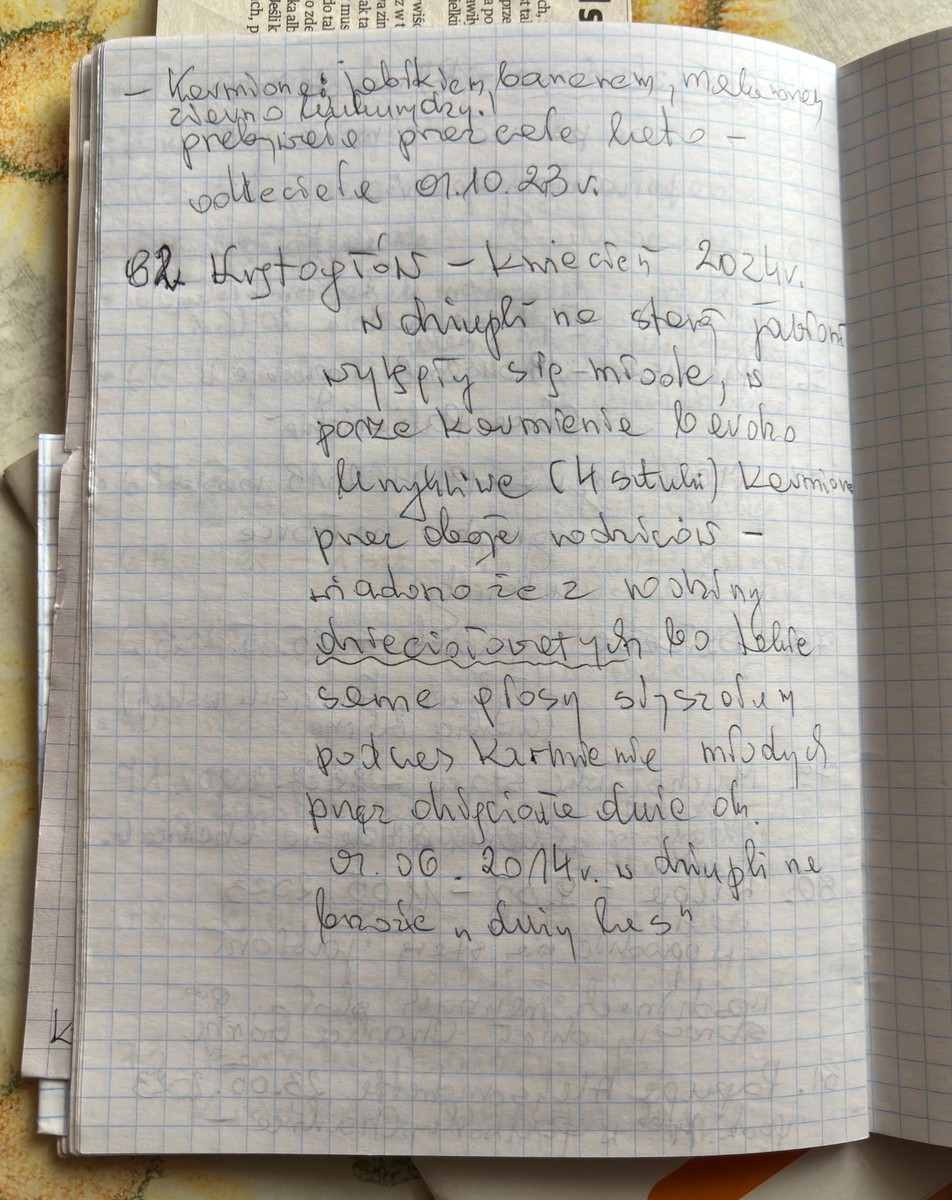 - Karmione: jabłkiem, bananem, makaronem
ziarno kukurydzy!
przebywała przez całe lato -
odleciała 01.10.23 r.
62. Krętogłów - kwiecień 2024r.
w dziupli na starej jabłoni
wylęgły się młode, w
porze karmienia bardzo
krzykliwe (4 sztuki) karmione
przez oboje rodziców -
wiadomo że z rodziny
dzięciołowatych bo takie
same głosy słyszałem
podczas karmienia młodych
przez dzięcioła duże ok.
01.06.2014r. w dziupli na
brzozie "duży las"